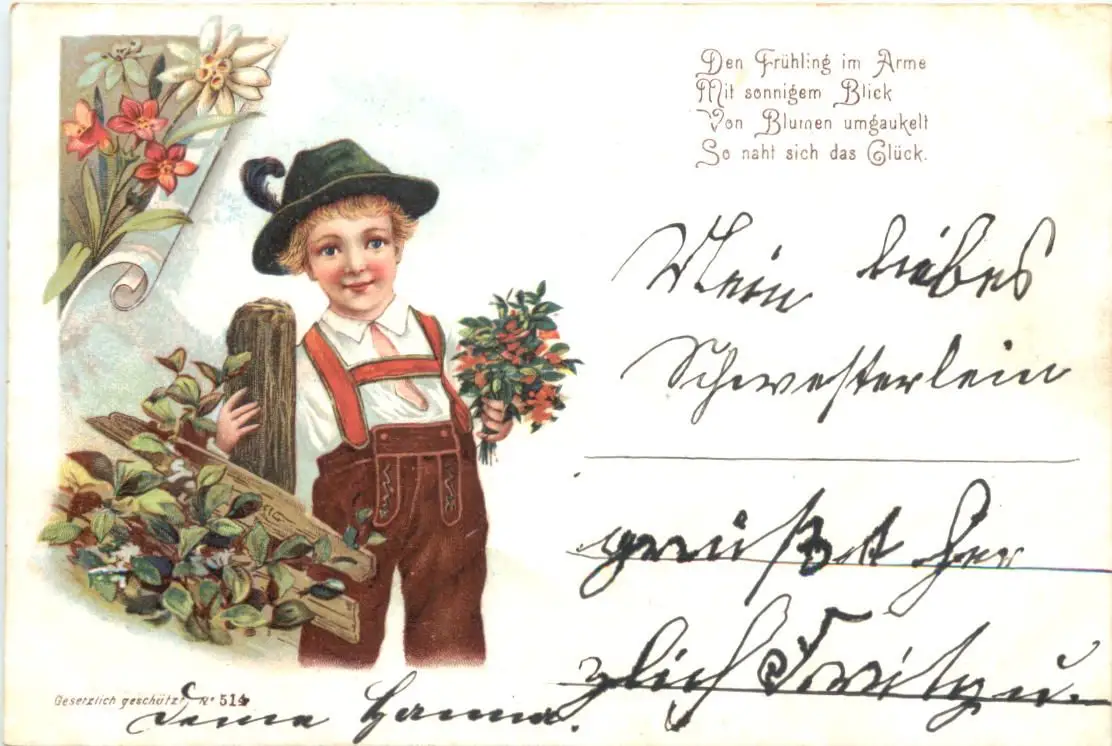 Den Frühling im Arme
Mit sonnigem Blick
Von Blumen umgaukelt
So naht sich das Glück.
Mein liebes
Schwesterlein
grüßet Her
zlich Fritz u.
Deine Hanna.
Gesetzlich geschützt. No 514